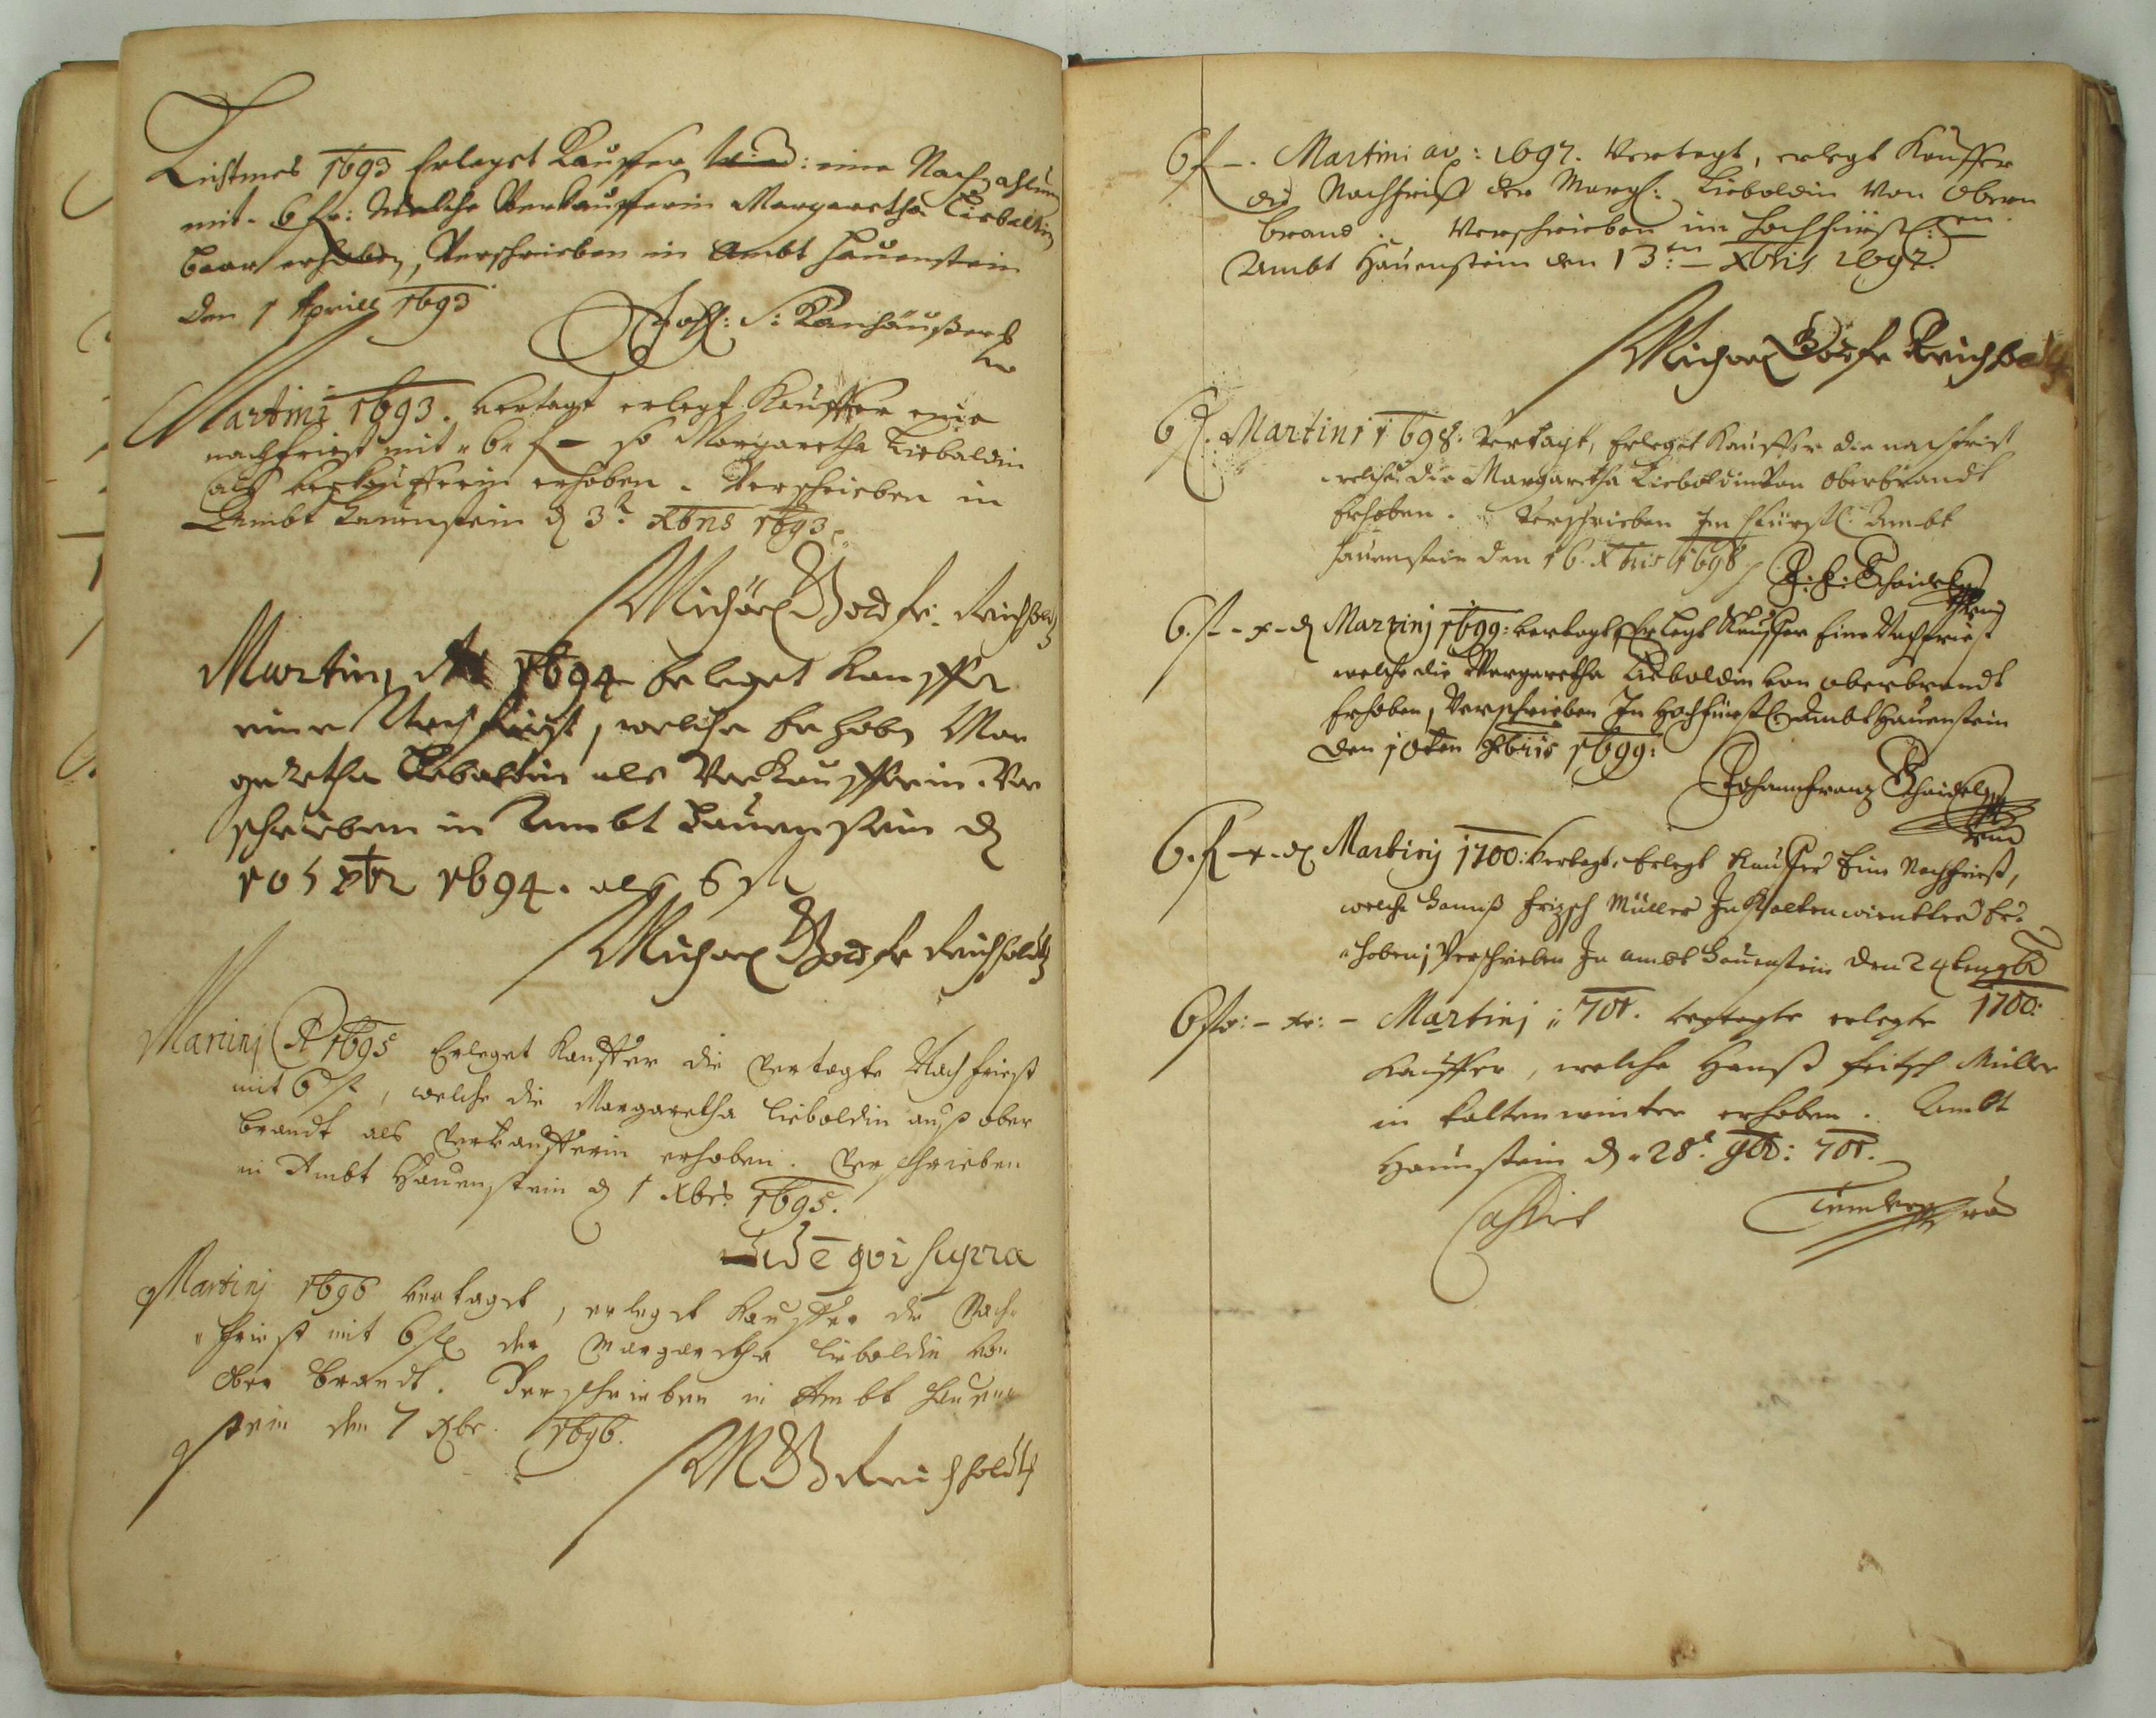 Lichtmes 1693 Erlegst Kauffer eine Nachzahlung
mit 6 fl: Welche Verkaufferin Margaretha Liebaltin
baar erhoben, Verschrieben in Ambt Hauenstein
den 1 Aprill 1693
Joh: S: Kanhäußer
Martini 1693. vertagt erlegt Kauffer eine
nachfriest mit 6 f so Margaretha Liebaldin
als verkaufferin erhoben. Verschrieben in
Ambt Hauenstein d 3t Xbris 1693.
Michael Godfr: Reichholdt
Martinj Ao 1694 Erleget Kauffer
eine Nachfrist, welche Erhobn Mar
garetha Liebaltin als Verkaufferin. Ver
schrieben in Ambt Hauenstein d
10 Xbr 1694. als 6 fl
Michael Godfr Reichholdt
Martinj A 1695 Erleget Kauffer die Vertagte Nachfriest
mit 6 fl, welche die Margaretha Lieboldin auß ober
brandt als Verkaufferin erhoben. Verschrieben
in Ambt Hauenstein d 1 Xbris 1695.
Idē qvi supra
Martinj 1696 vertaget, erleget Kauffer die Nach-
friest mit 6 fl der Margaretha Lieboldin von
Ober Brandt. Verschrieben in Ambt Hauen-
stein den 7 Xbr. 1696.
M G Reichholdt
6 f —. Martini ao: 1697. Vertagt, erlegt Kauffer
die Nachfrist der Margh: Lieboldin Von Obern
brand. Verschrieben im Hochfürstl:en
Ambt Hauenstein den 13:ten Xbris 1697.
Michael Godfr Reichholdt
6 f. Martini 1698. Vertagt, Erleget Kauffer die nachfrist
welche die Margaretha Lieboldin Von Oberbrandt
Erhoben. Verschrieben Im hfürstl: Ambt
Hauenstein den 16. Xbris 1698
J: F: Schaidel
6. fl - x - d Martinj 1699: vertagt Erlegt Kauffer Eine Nachfriest
welche die Margaretha Lieboldin von oberbrandt
Erhoben, Verschrieben In Hochfürstl Ambt Hauenstein
den 10ten Xbris 1699:
Johann Franz Schaidel
6. fl - x - d Martinj 1700: Vertagt. Erlegt Kauffer Eine Nachfriest,
welche Hannß Fritzsch Müller In Kaltenwinkler Er-
hoben, Verschrieben In ambt Hauenstein den 24ten 9br
1700:
6 fl: - xr: - Martinj 1701. vertagte erlegte
Kauffer, welche Hannß Fritsch Müller
in kaltenwinter erhoben. Ambt
Hauenstein d. 28t 9br: 701.